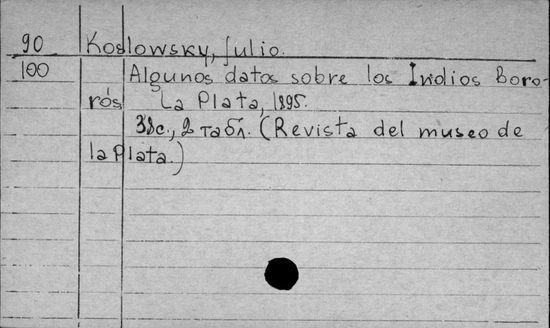 90 Koslowsky, Julio.
100 Algunos datos sobre los Indios Boro-
rós La Plata, 1895.
38с., 2 табл. (Revista del museo de
la Plata.)